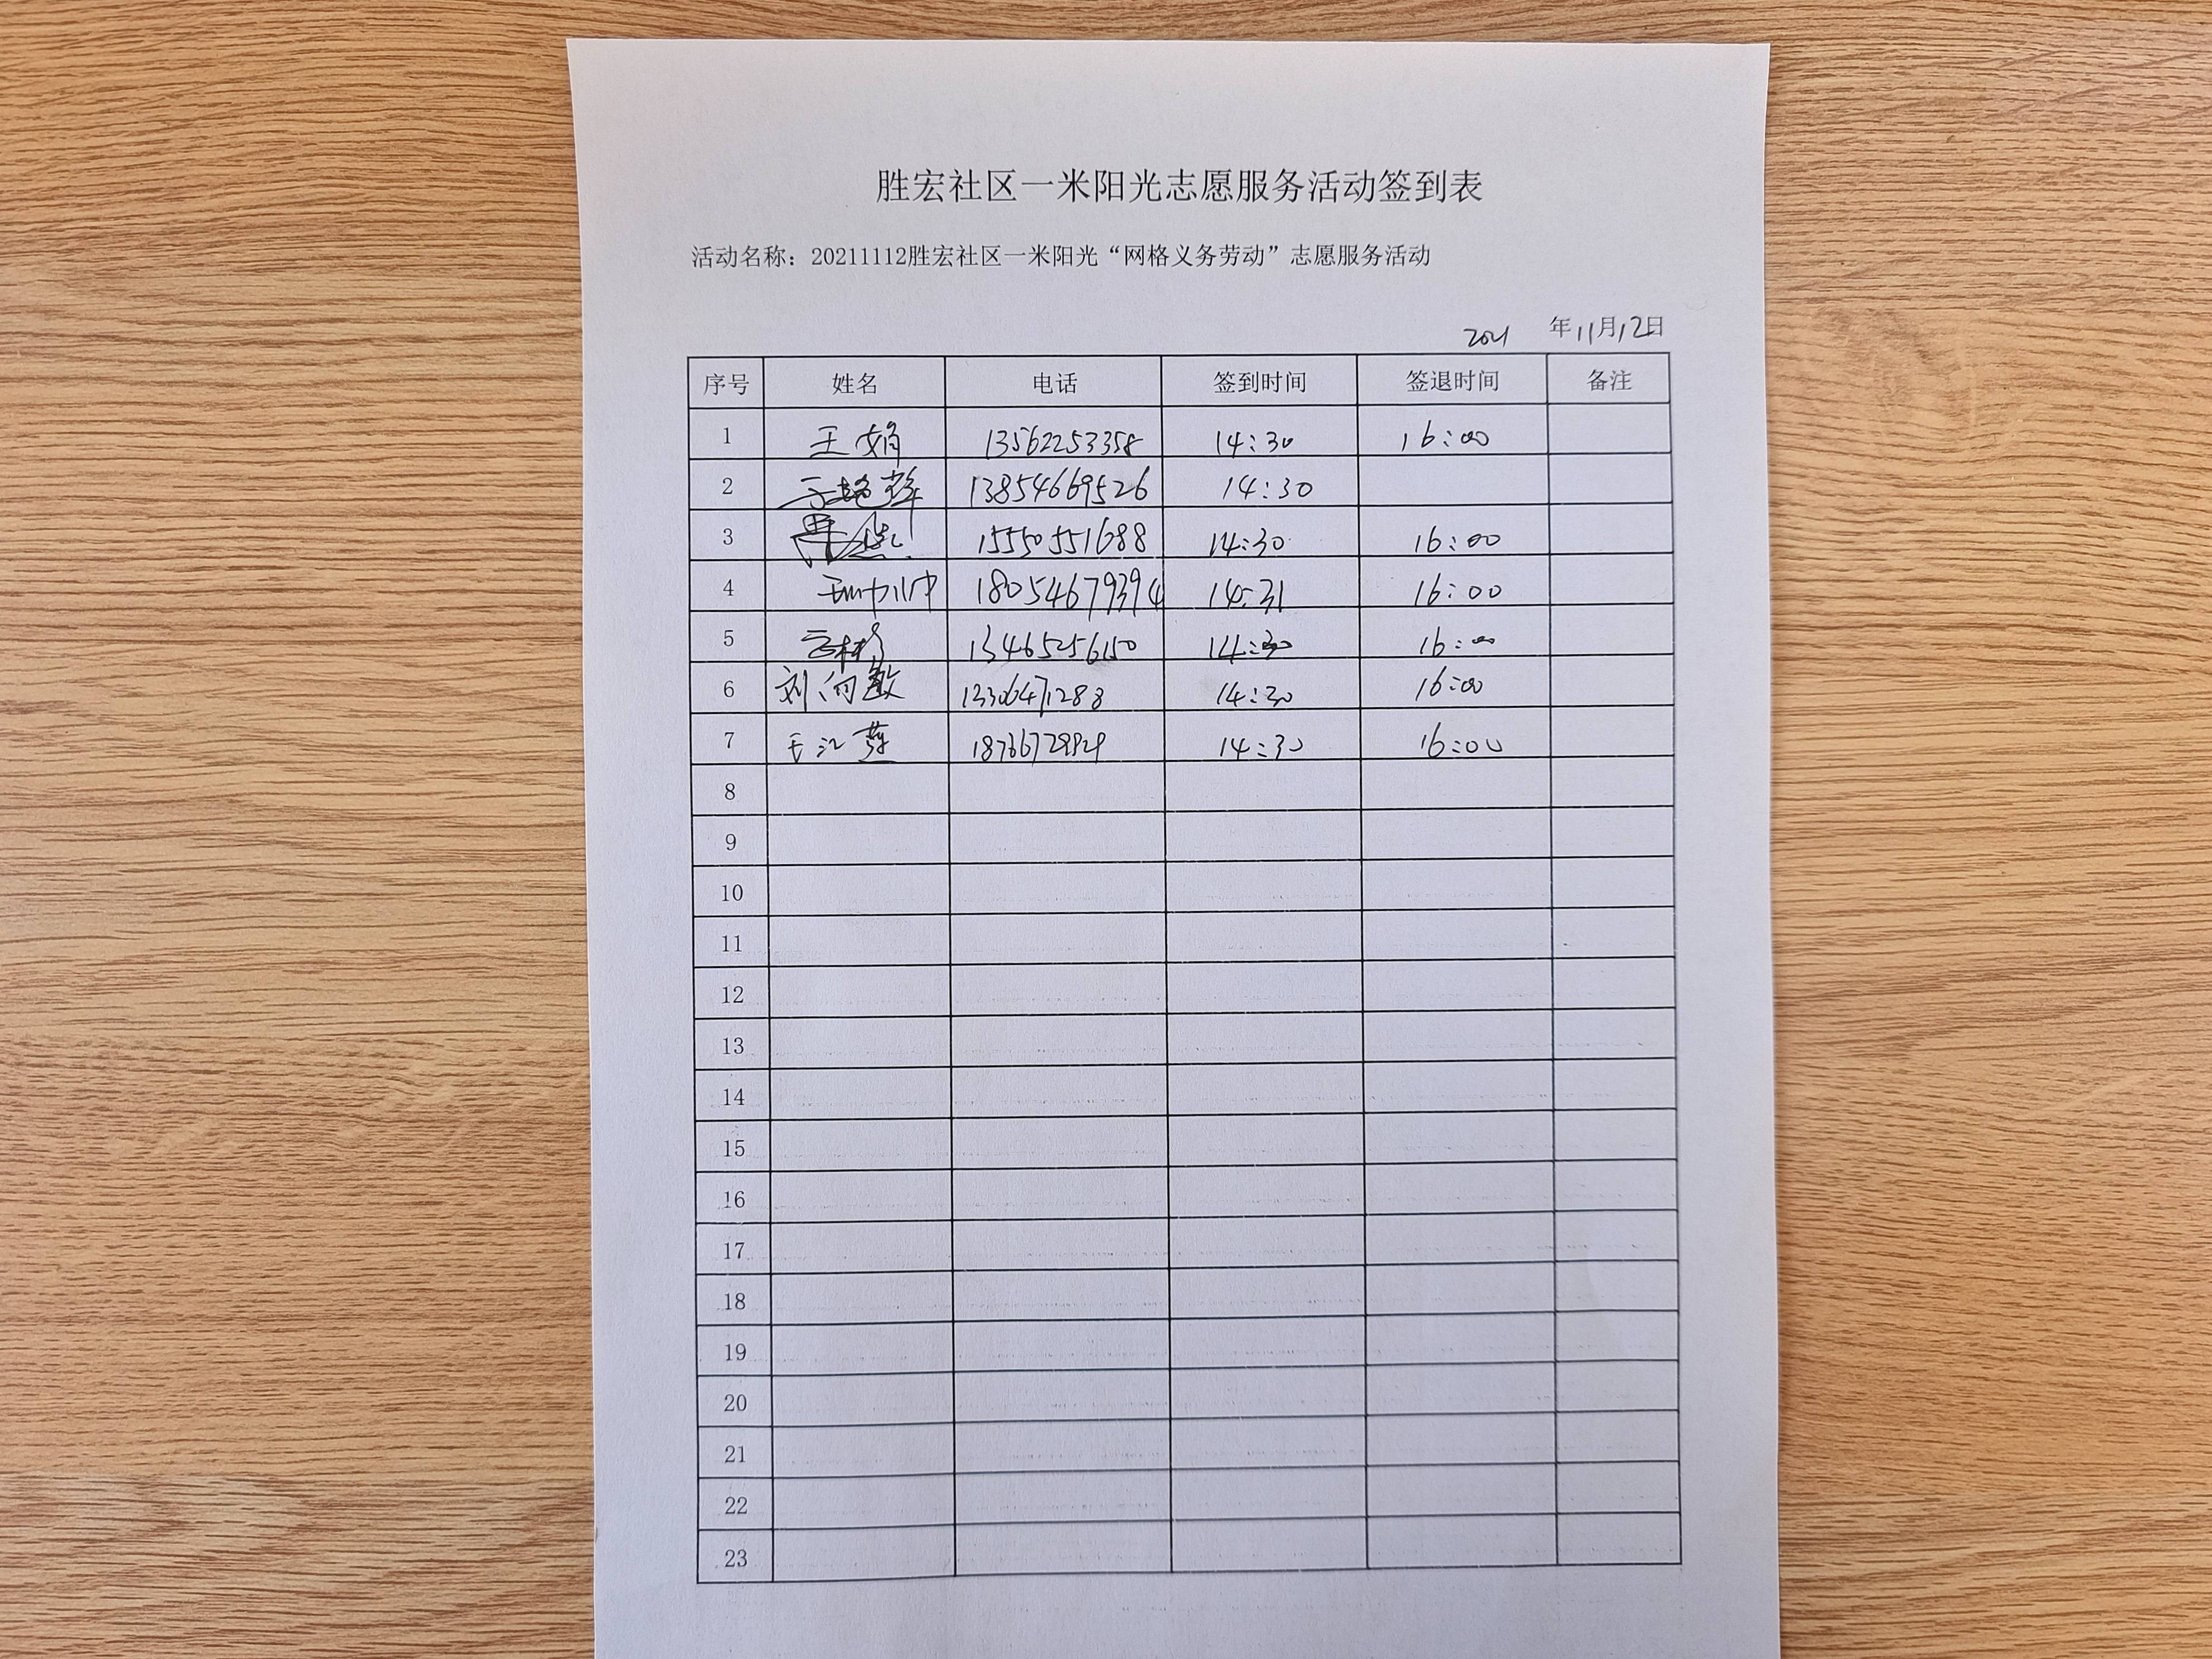 胜宏社区一米阳光志愿服务活动签到表
活动名称：20211112胜宏社区一米阳光“网格义务劳动”志愿服务活动
2021 年11月12日
序号 姓名 电话 签到时间 签退时间 备注
1 王娟 13562253358 14:30 16:00
2 13854669526 14:30
3 15550551688 14:30 16:00
4 18054679394 14:31 16:00
5 13465256150 14:30 16:00
6 刘向敏 13306471288 14:30 16:00
7 王江燕 14:30 16:00
8
9
10
11
12
13
14
15
16
17
18
19
20
21
22
23